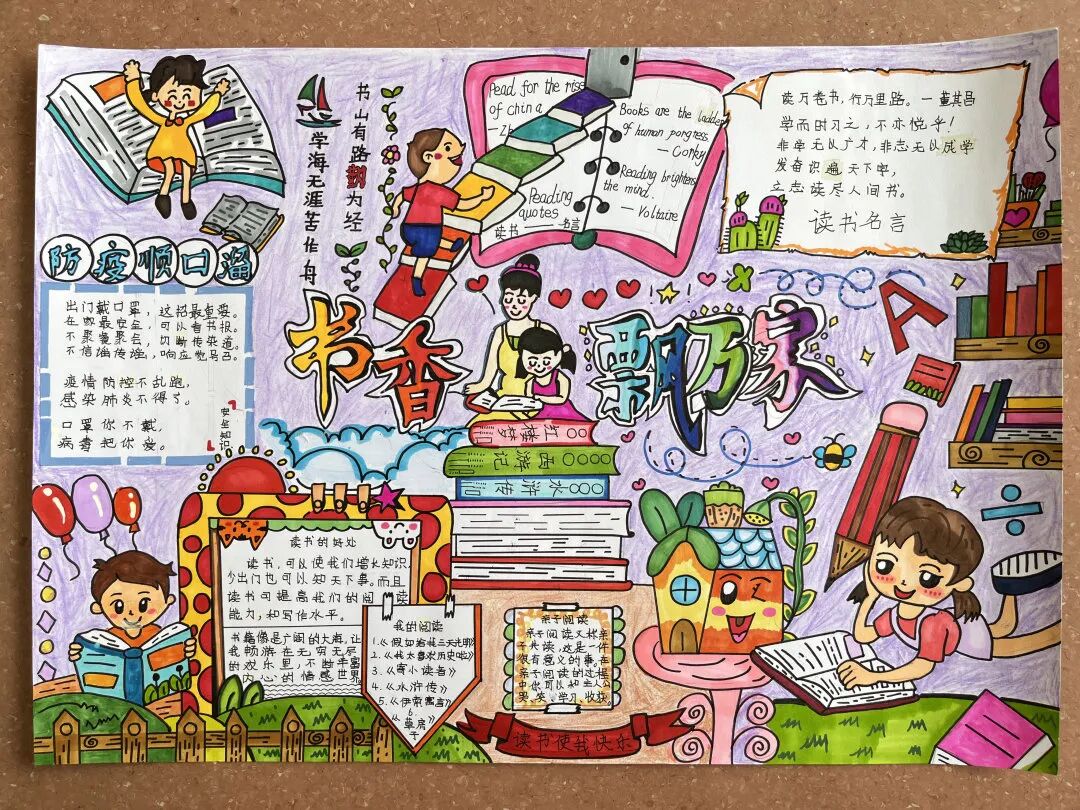 书山有路勤为径
学海无涯苦作舟
Read for the rise
of china
Books are the ladder
of human porgress.
— Gorky
Reading brightens
the mind.
— Voltaire
Reading
quotes
读书——名言
读万卷书，行万里路。一董其昌
学而时习之，不亦悦乎！
非学无以广才，非志无以成学
发奋识遍天下字，
立志读尽人间书。
读书名言
防疫顺口溜
出门戴口罩，这招最重要。
在家最安全，可以看书报。
不聚餐聚会，切断传染道。
不信谣传谣，响应党号召。
疫情防控不乱跑，
感染肺炎不得了。
口罩你不戴，
病毒把你爱。
书香飘万家
红楼梦
西游记
水浒传
读书的好处
读书，可以使我们增长知识，
少出门也可以知天下事。而且
读书可提高我们的阅读
能力，和写作水平。
书籍像是广阔的大海，让
我畅游在无穷无尽
的欢乐里，不断丰富
内心的情感世界
我的阅读
1.《假如给我三天光明》
2.《我太喜欢历史啦》
3.《寄小读者》
4.《水浒传》
5.《伊索寓言》
6
《草房子》
亲子阅读
亲子阅读又称亲
子共读，这是一件
很有意义的事。在
亲子阅读的过程
中你可以和主人公
哭、笑、学习、收获。
读书使我快乐